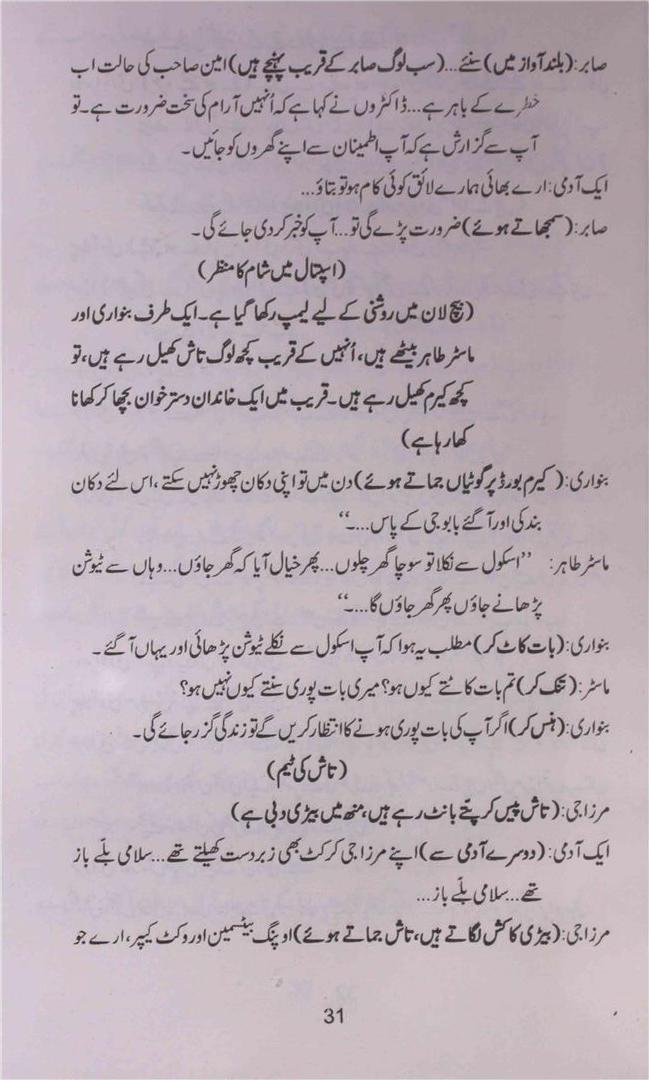 صابر: (بلند آواز میں) سنئے... (سب لوگ صابر کے قریب پہنچے ہیں) امین صاحب کی حالت اب
خطرے کے باہر ہے... ڈاکٹروں نے کہا ہے کہ اُنہیں آرام کی سخت ضرورت ہے۔ تو
آپ سے گزارش ہے کہ آپ اطمینان سے اپنے گھروں کو جائیں۔
ایک آدمی: ارے بھائی ہمارے لائق کوئی کام ہو تو بتاؤ...
صابر: (سمجھاتے ہوئے) ضرورت پڑے گی تو... آپ کو خبر کر دی جائے گی۔
(اسپتال میں شام کا منظر)
(بیچ لان میں روشنی کے لیے لیمپ رکھا گیا ہے۔ ایک طرف بنواری اور
ماسٹر طاہر بیٹھے ہیں، اُنہیں کے قریب کچھ لوگ تاش کھیل رہے ہیں، تو
کچھ کیرم کھیل رہے ہیں۔ قریب میں ایک خاندان دسترخوان بچھا کر کھانا
کھا رہا ہے)
بنواری: (کیرم بورڈ پر گوٹیاں جماتے ہوئے) دن میں تو اپنی دکان چھوڑ نہیں سکتے، اس لئے دکان
بند کی اور آ گئے بابوجی کے پاس....۔‘‘
ماسٹر طاہر: ’’اسکول سے نکلا تو سوچا گھر چلوں... پھر خیال آیا کہ گھر جاؤں... وہاں سے ٹیوشن
پڑھانے جاؤں پھر گھر جاؤں گا....۔‘‘
بنواری: (بات کاٹ کر) مطلب یہ ہوا کہ آپ اسکول سے نکلے ٹیوشن پڑھائی اور یہاں آ گئے۔
ماسٹر: (تنک کر) تم بات کاٹتے کیوں ہو؟ میری بات پوری سنتے کیوں نہیں ہو؟
بنواری: (ہنس کر) اگر آپ کی بات پوری ہونے کا انتظار کریں گے تو زندگی گزر جائے گی۔
(تاش کی ٹیم)
مرزا جی: (تاش پیس کر پتّے بانٹ رہے ہیں، منھ میں بیڑی دبی ہے)
ایک آدمی: (دوسرے آدمی سے) اپنے مرزا جی کرکٹ بھی زبردست کھیلتے تھے... سلامی بلّے باز
تھے... سلامی بلّے باز...
مرزا جی: (بیڑی کا کش لگاتے ہیں، تاش جماتے ہوئے) اوپنگ بیٹسمین اور وکٹ کیپر، ارے جو
31